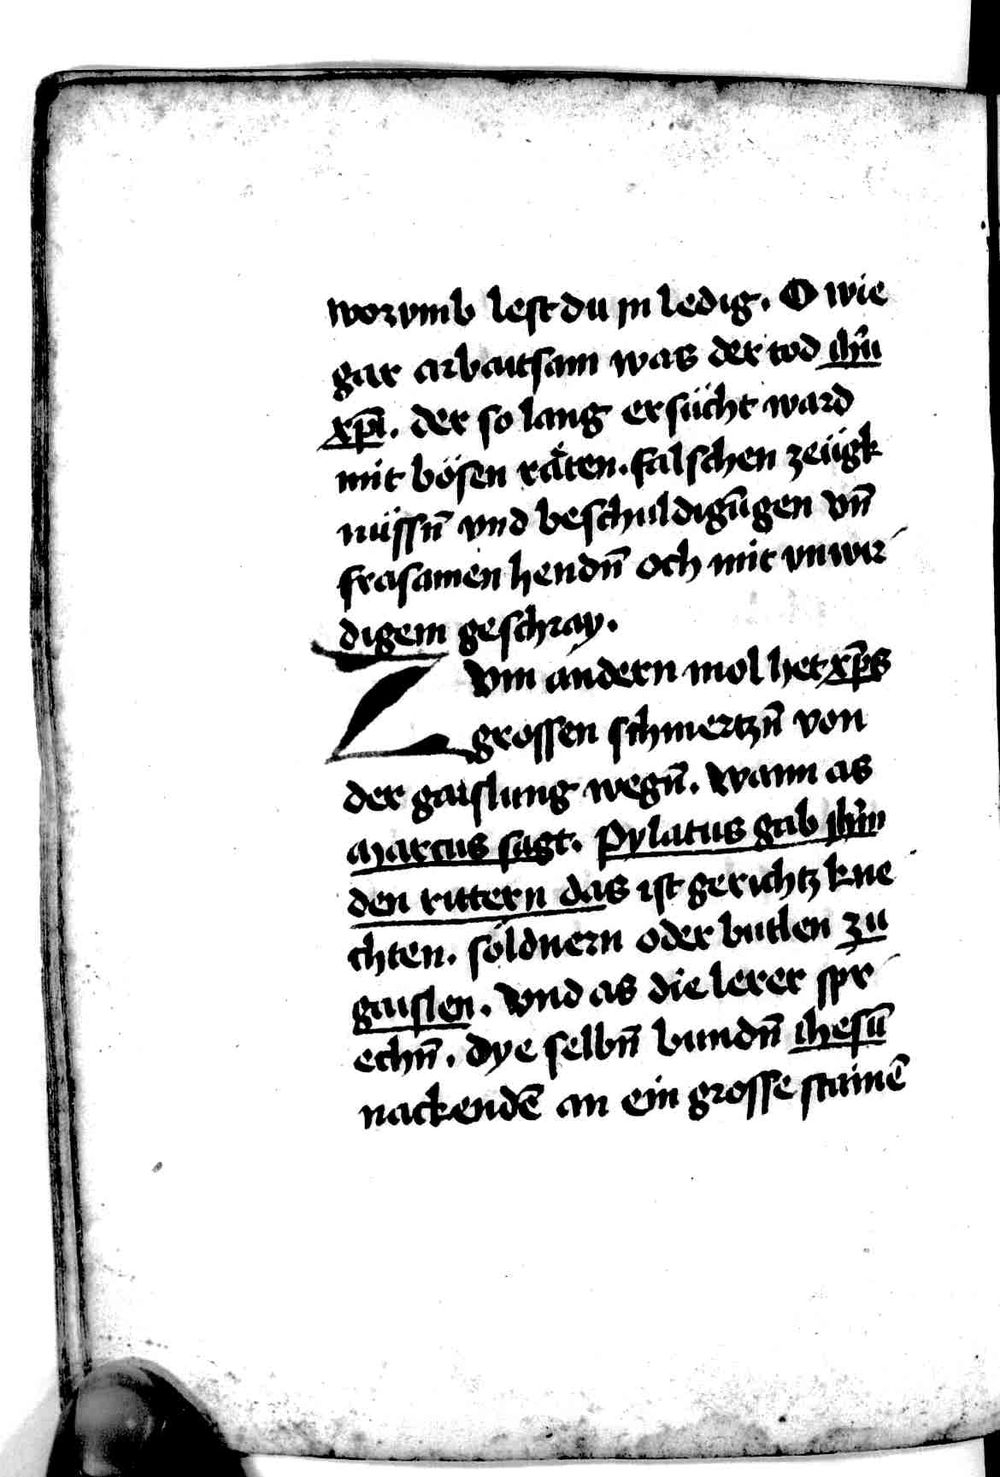 worvmb lest du in ledig. O wie
gar arbaitsam was der tod ih̄u
xp̄i. der so lang ersücht ward
mit bösen räten. falschen zeügk
nüssn̄ vnd beschuldigūgen vn̄
frasamen hendn̄ och mit vnwir
digem geschray.
Zvm andern mol het xp̄s
grossen schmertzn̄ von
der gaislung wegn̄. Wann as
marcus sagt. Pylatus gab ih̄m
den rittern das ist gerichtz kne
chten. söldnern oder butlen zu
gaislen. Vnd as die lerer spr
echn̄. dye selbn̄ bundn̄ ihesū
nackendē an ein grosse stainē